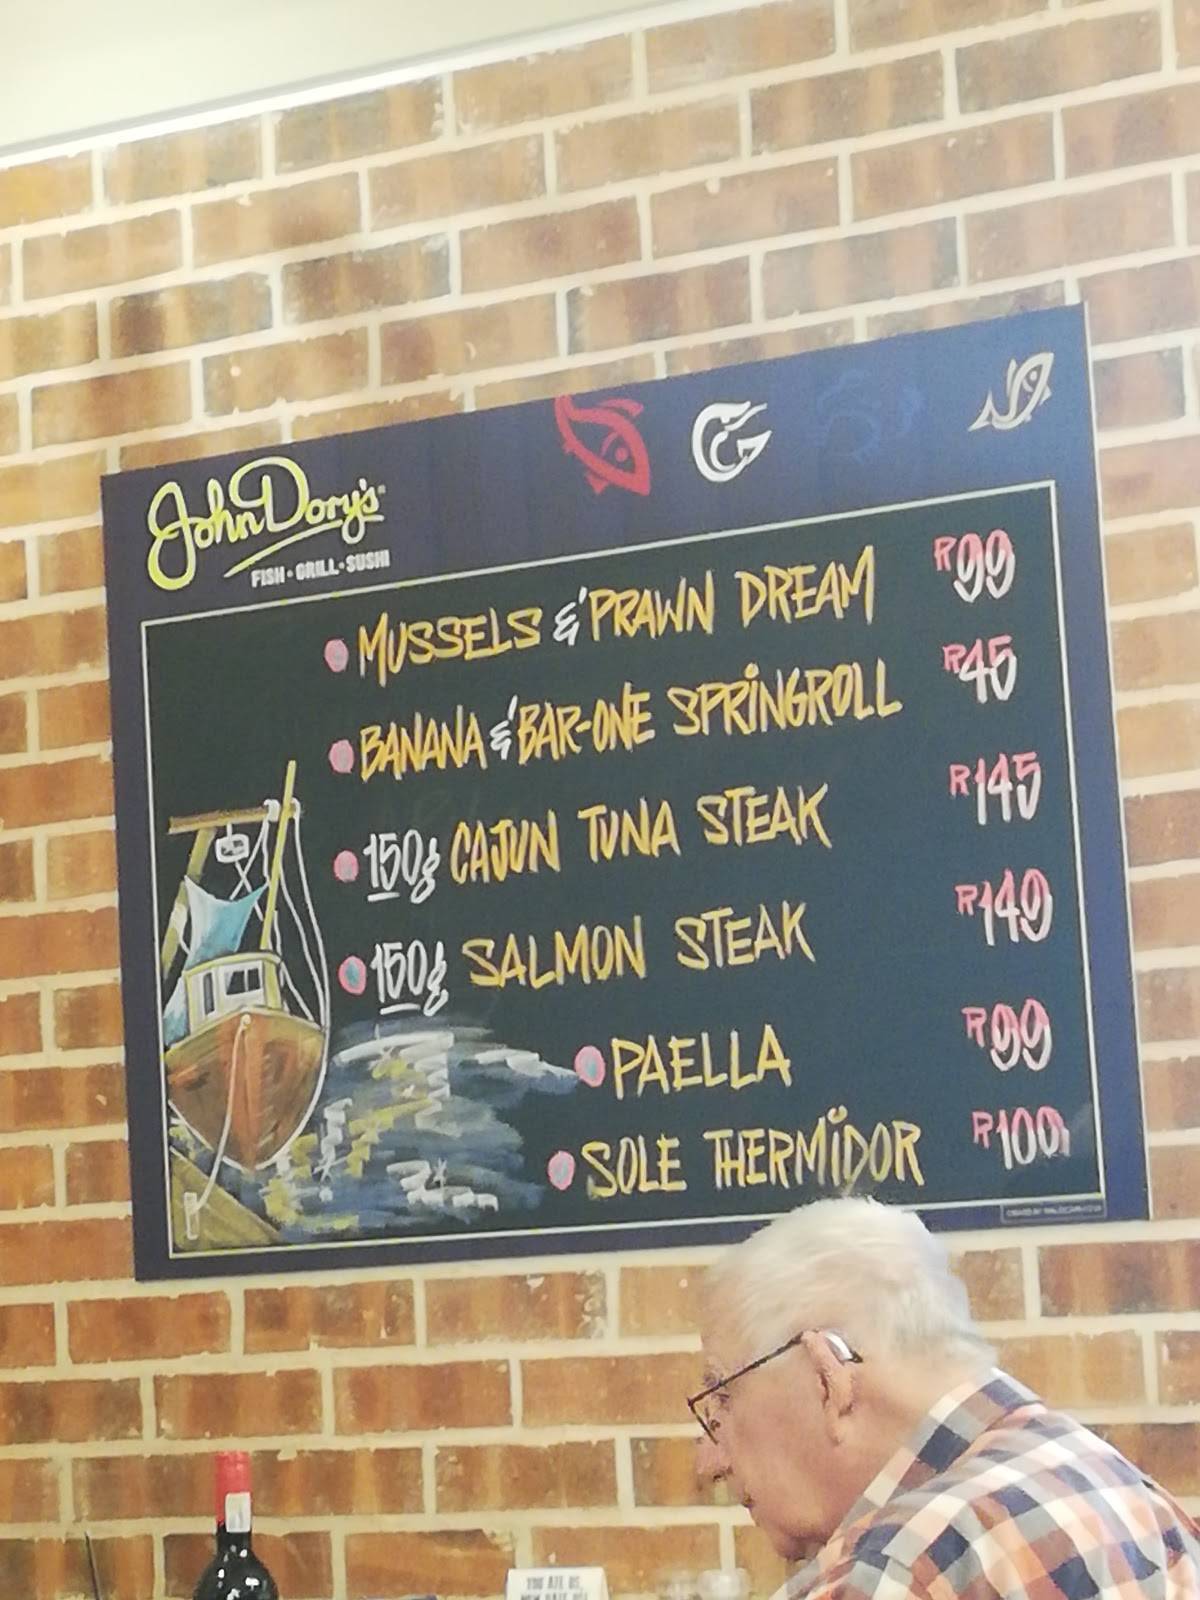 John Dory's
FISH · GRILL · SUSHI
MUSSELS & PRAWN DREAM R99
BANANA & BAR-ONE SPRINGROLL R45
150g CAJUN TUNA STEAK R145
150g SALMON STEAK R149
PAELLA R99
SOLE THERMIDOR R100
YOU ATE US,
NOW RATE US!